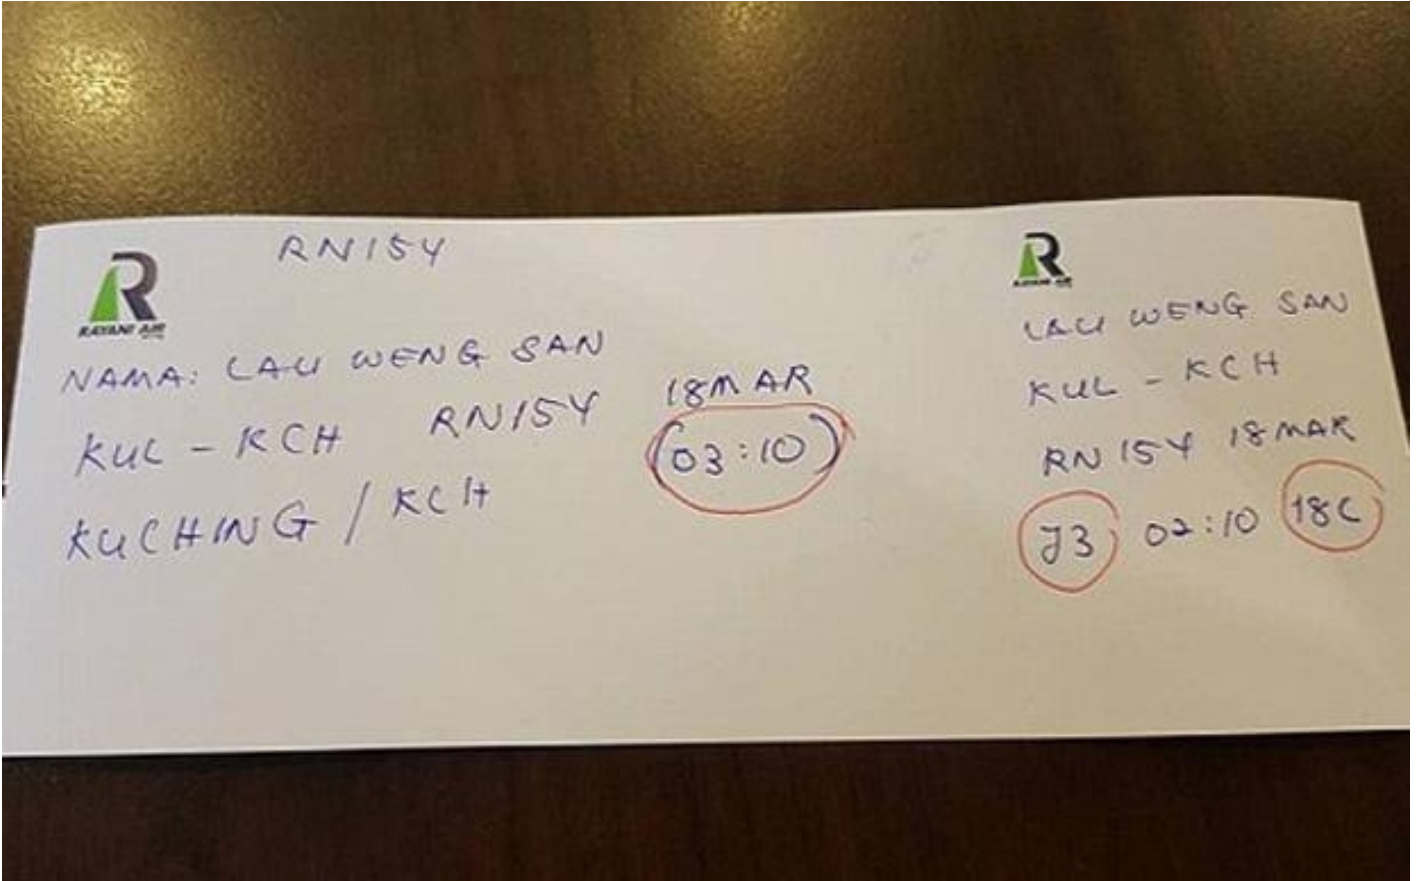 RN154
RAYANI AIR
NAMA: LAU WENG SAN
KUL - KCH RN154 18MAR
(03:10)
KUCHING / KCH
RAYANI AIR
LAU WENG SAN
KUL - KCH
RN 154 18MAR
J3 02:10 18C